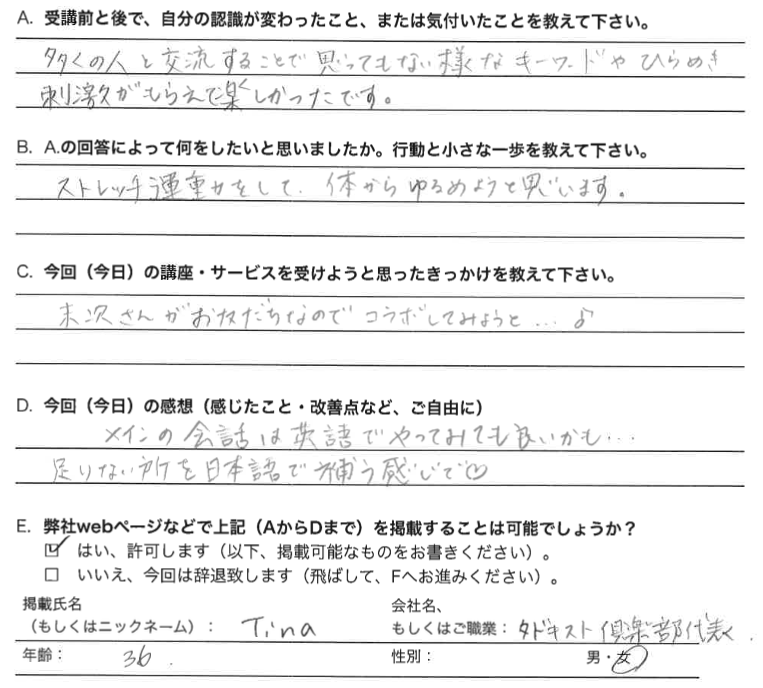 A. 受講前と後で、自分の認識が変わったこと、または気付いたことを教えて下さい。
多くの人と交流することで思ってもない様なキーワードやひらめき
刺激がもらえて楽しかったです。
B. A.の回答によって何をしたいと思いましたか。行動と小さな一歩を教えて下さい。
ストレッチ運動をして、体からゆるめようと思います。
C. 今回（今日）の講座・サービスを受けようと思ったきっかけを教えて下さい。
末次さんがお友だちなのでコラボしてみようと…♪
D. 今回（今日）の感想（感じたこと・改善点など、ご自由に）
メインの会話は英語でやってみても良いかも…
足りない所を日本語で補う感じで♡
E. 弊社webページなどで上記（AからDまで）を掲載することは可能でしょうか？
☑ はい、許可します（以下、掲載可能なものをお書きください）。
☐ いいえ、今回は辞退致します（飛ばして、Fへお進みください）。
掲載氏名 会社名、
（もしくはニックネーム）： Tina もしくはご職業： 倶楽部代表
年齢： 36 性別： 男・女